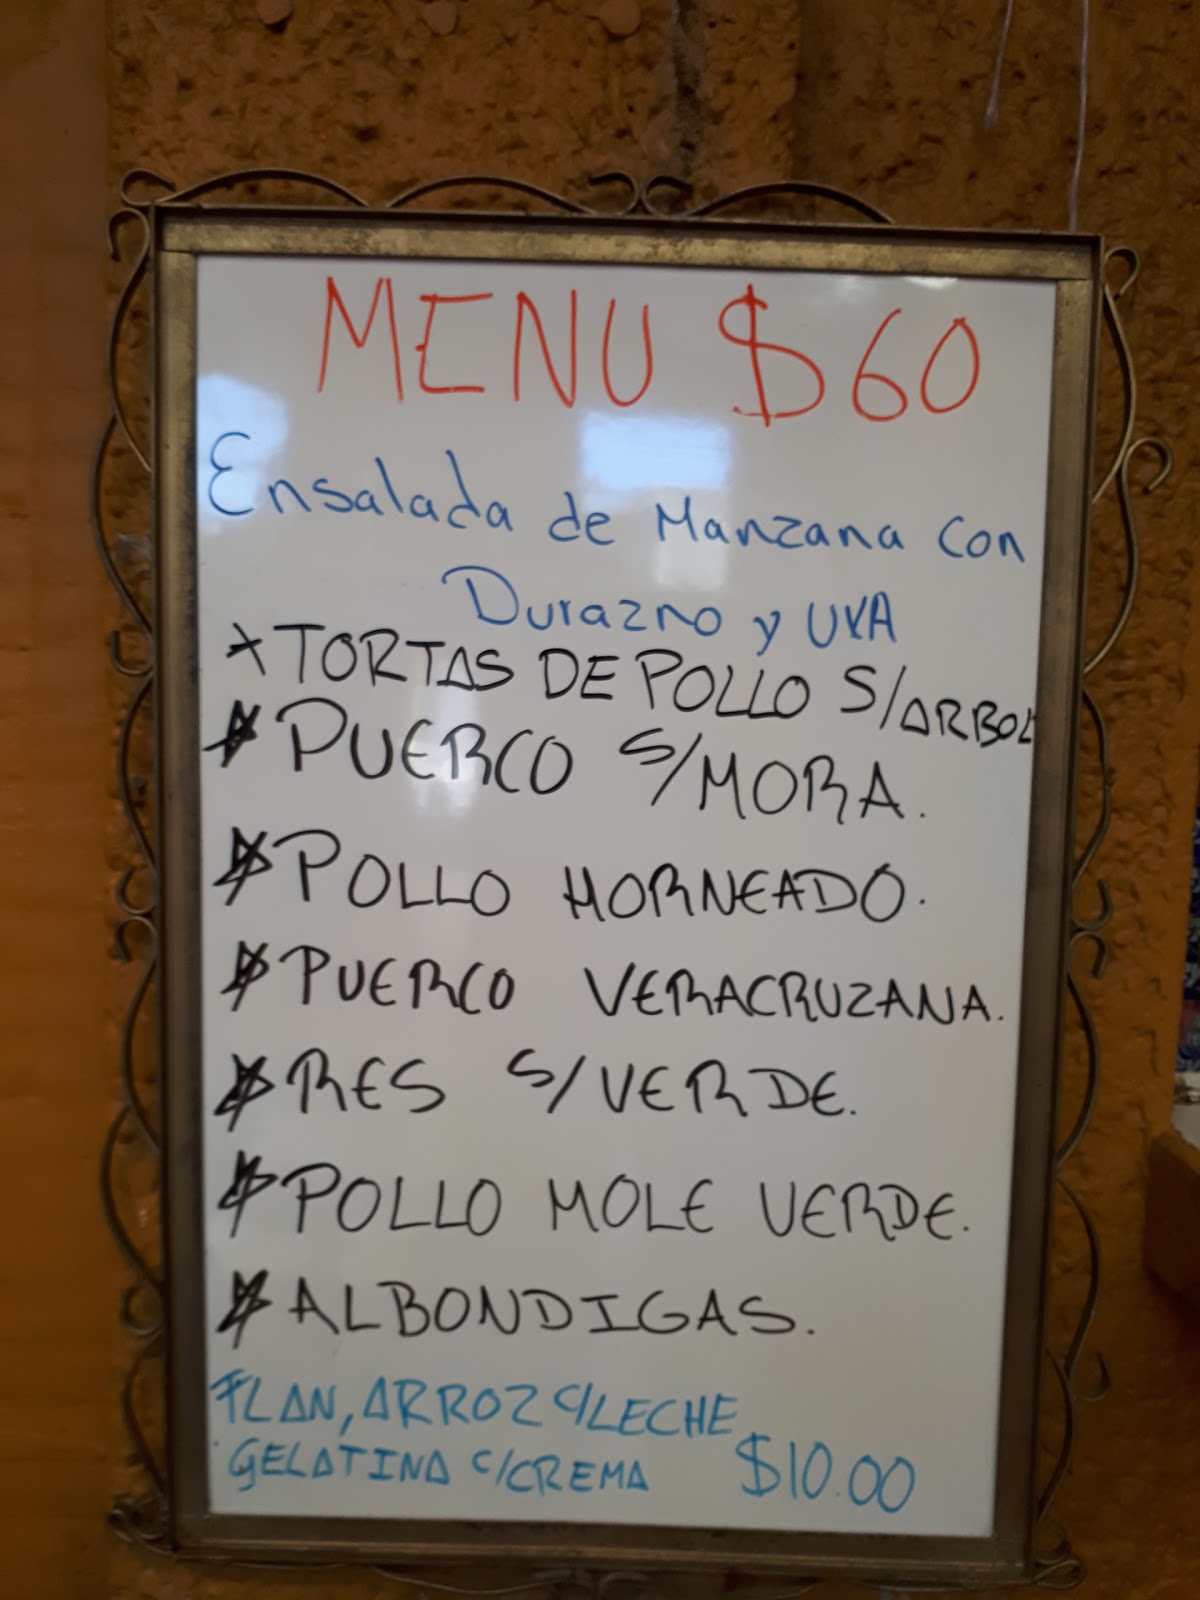 MENU $60
Ensalada de Manzana con
Durazno y UVA
* TORTAS DE POLLO S/ARBOL
* PUERCO S/MORA.
* POLLO HORNEADO.
* PUERCO VERACRUZANA.
* RES S/VERDE.
* POLLO MOLE VERDE.
* ALBONDIGAS.
FLAN, ARROZ C/LECHE
GELATINA C/CREMA $10.00